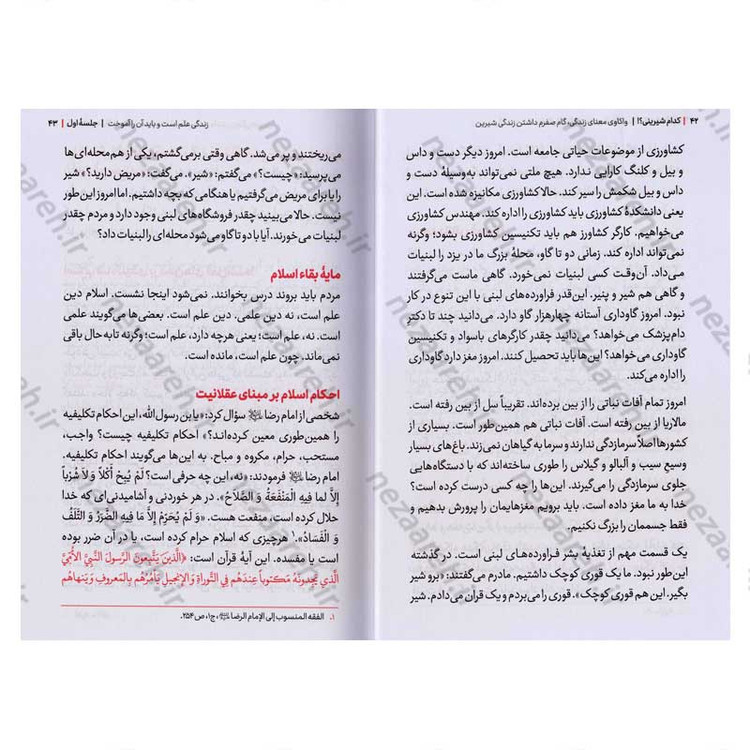 ۴۲ | کدام شیرینی؟! | واکاوی معنای زندگی، گام صفرم داشتن زندگی شیرین
کشاورزی از موضوعات حیاتی جامعه است. امروز دیگر دست و داس
و بیل و کلنگ کارایی ندارد. هیچ ملتی نمی‌تواند به‌وسیلهٔ دست و
داس و بیل شکمش را سیر کند. حالا کشاورزی مکانیزه شده است.
یعنی دانشکدهٔ کشاورزی باید کشاورزی را اداره کند. مهندس کشاورزی
می‌خواهیم. کارگر کشاورز هم باید تکنیسین کشاورزی بشود؛ وگرنه
نمی‌تواند اداره کند. زمانی دو تا گاو، محلهٔ بزرگ ما در یزد را لبنیات
می‌داد. آن‌وقت کسی لبنیات نمی‌خورد. گاهی ماست می‌گرفتند
و گاهی هم شیر و پنیر. این‌قدر فراورده‌های لبنی با این تنوع در کار
نبود. امروز گاوداری آستانه چهارهزار گاو دارد. می‌دانید چند تا دکتر
دام‌پزشک می‌خواهد؟ می‌دانید چقدر کارگرهای باسواد و تکنیسین
گاوداری می‌خواهد؟ این‌ها باید تحصیل کنند. امروز مغز دارد گاوداری
را اداره می‌کند.
امروز تمام آفات نباتی را از بین برده‌اند. تقریباً سل از بین رفته است.
مالاریا از بین رفته است. آفات نباتی هم همین‌طور است. بسیاری از
کشورها اصلاً سرمازدگی ندارند و سرما به گیاهان نمی‌زند. باغ‌های بسیار
وسیع سیب و آلبالو و گیلاس را طوری ساخته‌اند که با دستگاه‌هایی
جلوی سرمازدگی را می‌گیرند. این‌ها را چه کسی درست کرده است؟
خدا به ما مغز داده است. باید برویم مغزهایمان را پرورش بدهیم و
فقط جسممان را بزرگ نکنیم.
یک قسمت مهم از تغذیه بشر فراورده‌های لبنی است. در گذشته
این‌طور نبود. ما یک قوری کوچک داشتیم. مادرم می‌گفتند: «برو شیر
بگیر. این هم قوری کوچک». قوری را می‌بردم و یک قران می‌دادم. شیر
زندگی علم است و باید آن را آموخت | جلسهٔ اول | ۴۳
می‌ریختند و پر می‌شد. گاهی وقتی برمی‌گشتم، یکی از هم‌محله‌ای‌ها
می‌پرسید: «چیست؟» می‌گفتم: «شیر». می‌گفت: «مریض دارید؟» شیر
را یا برای مریض می‌گرفتیم یا هنگامی که بچه داشتیم. اما امروز این‌طور
نیست. حالا می‌بینید چقدر فروشگاه‌های لبنی وجود دارد و مردم چقدر
لبنیات می‌خورند. آیا با دو تا گاو می‌شود محله‌ای را لبنیات داد؟
مایهٔ بقاء اسلام
مردم باید بروند درس بخوانند. نمی‌شود اینجا نشست. اسلام دین
علم است، نه دین علمی. دین علم است. بعضی‌ها می‌گویند علمی
است. نه، علم است؛ یعنی هرچه دارد، علم است؛ وگرنه تا به‌حال باقی
نمی‌ماند. چون علم است، مانده است.
احکام اسلام بر مبنای عقلانیت
شخصی از امام رضا سؤال کرد: «یابن رسول الله، این احکام تکلیفیه
را همین‌طوری معین کرده‌اند؟» احکام تکلیفیه چیست؟ واجب،
مستحب، حرام، مکروه و مباح. به این‌ها می‌گویند احکام تکلیفیه.
امام رضا فرمودند: نه، این چه حرفی است؟ «لَمْ یُبِحْ أَکْلاً وَ لَا شُرْباً
إِلَّا لِمَا فِیهِ الْمَنْفَعَةُ وَ الصَّلَاحُ». در هر خوردنی و آشامیدنی‌ای که خدا
حلال کرده است، منفعت هست. «وَ لَمْ یُحَرِّمْ إِلَّا مَا فِیهِ الضَّرَرُ وَ التَّلَفُ
وَ الْفَسَادُ».۱ هرچیزی که اسلام حرام کرده است، یا در آن ضرر بوده
است یا مفسده. این آیهٔ قرآن است: «الَّذِینَ یَتَّبِعُونَ الرَّسُولَ النَّبِیَّ الْأُمِّیَّ
الَّذِی یَجِدُونَهُ مَکْتُوباً عِنْدَهُمْ فِی التَّوْرَاةِ وَ الْإِنْجِیلِ یَأْمُرُهُمْ بِالْمَعْرُوفِ وَ یَنْهَاهُمْ
۱. الفقه المنسوب إلی الإمام الرضا، ج۱، ص۲۵۴.
nezaareh.ir